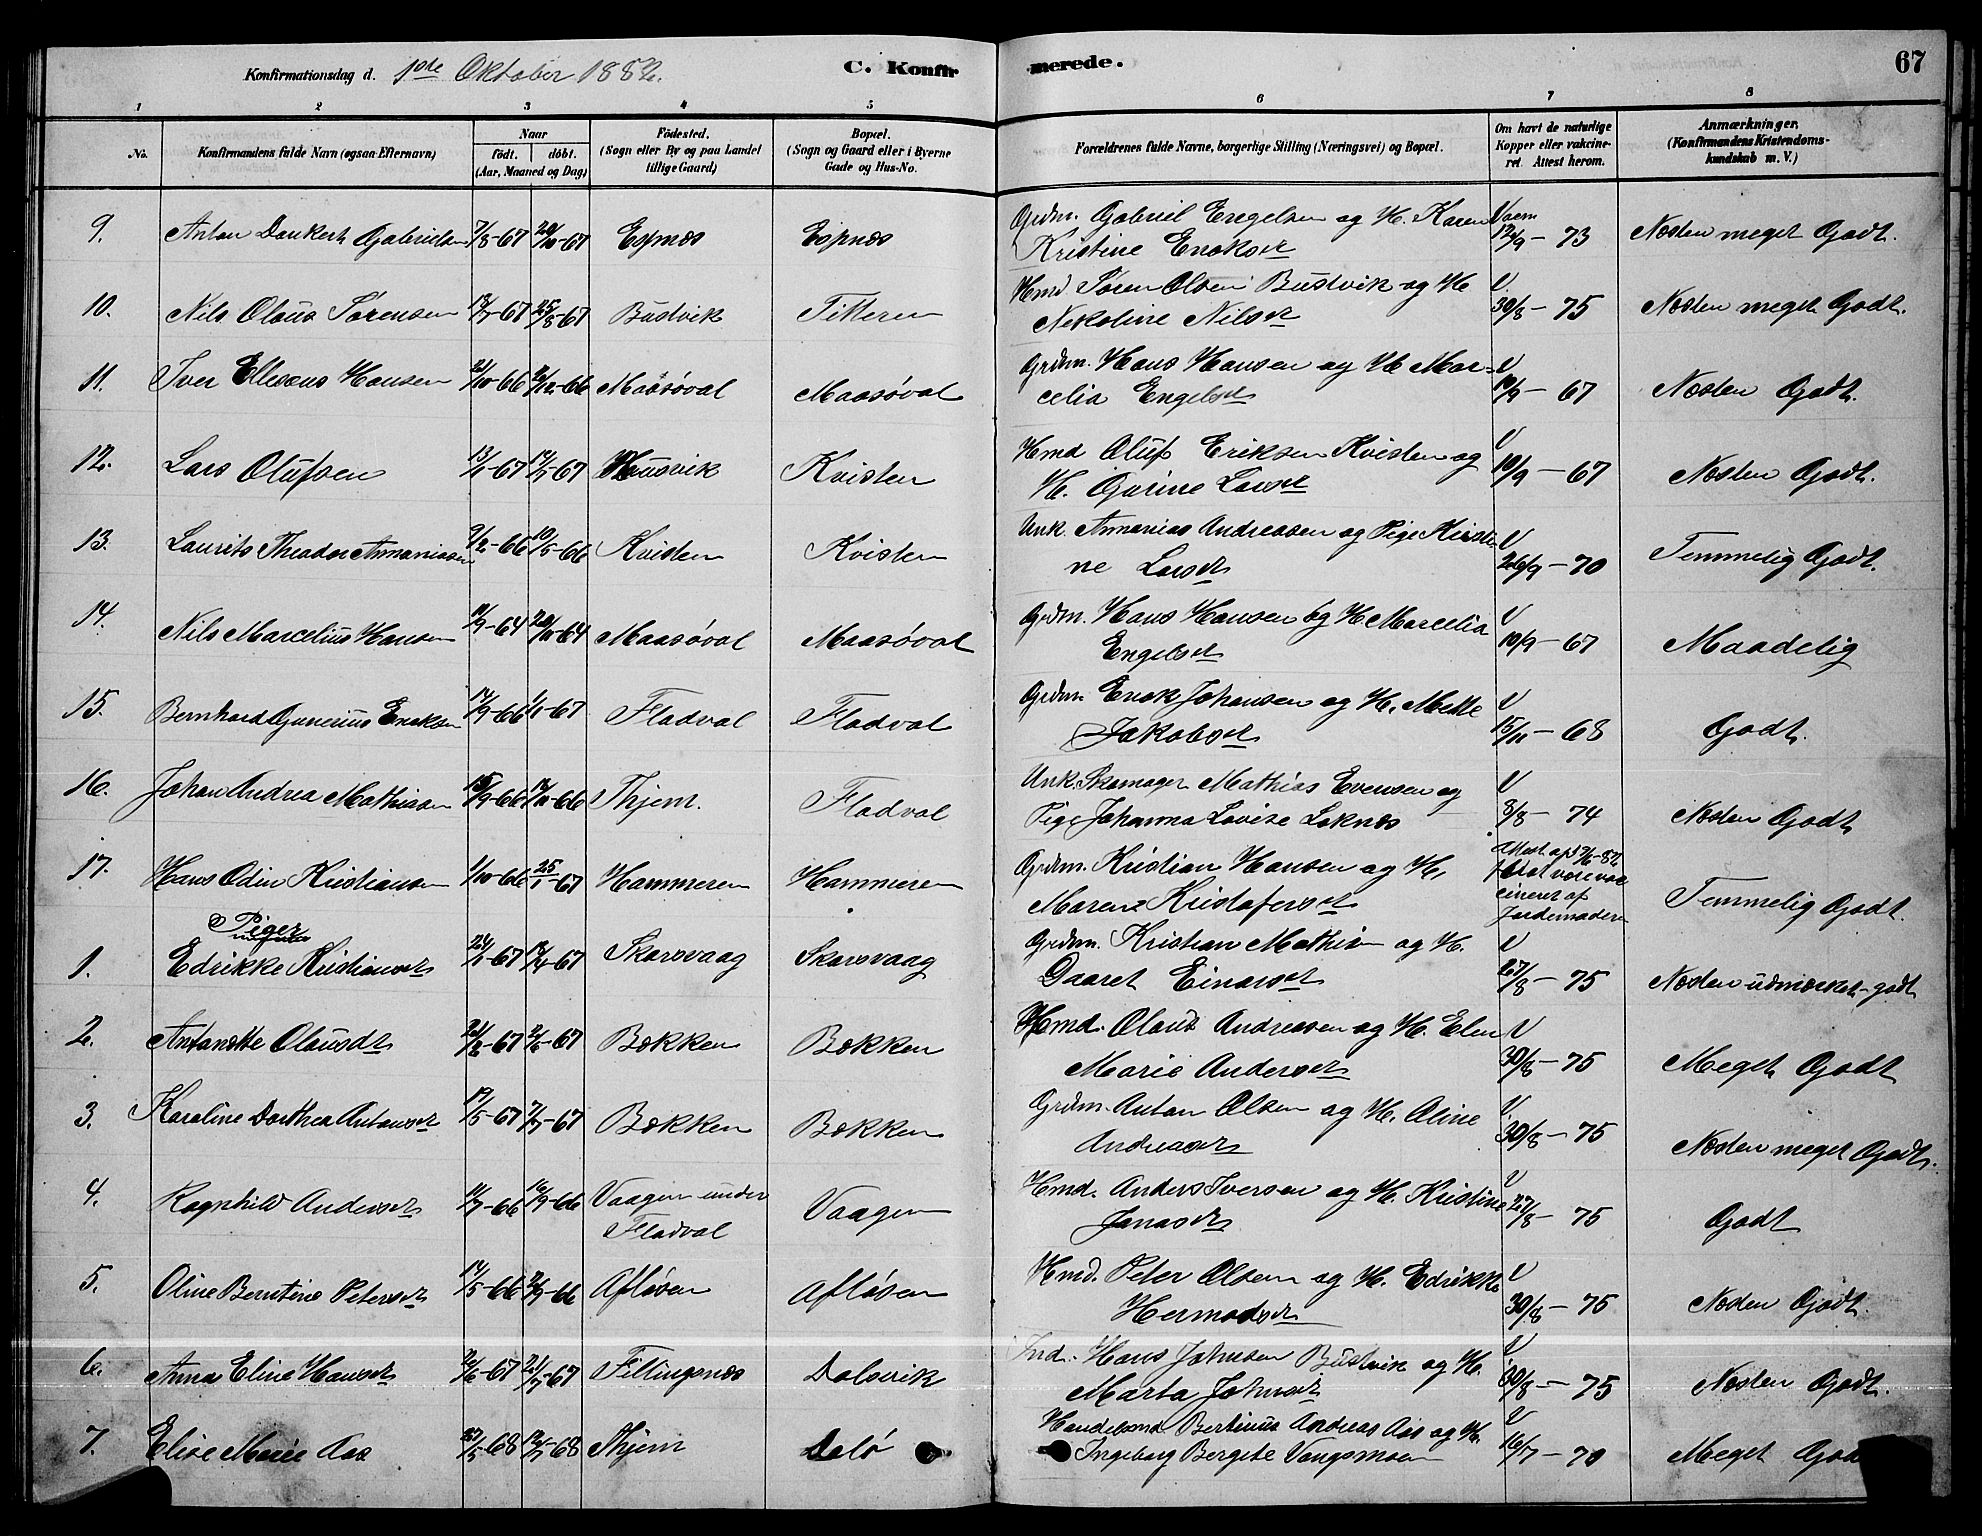 Konfirmationsdag d. 1ste Oktober 1882.
C. Konfirmerede.
67
1 2 3 4 5 6 7 8
No.
Konfirmandens fulde Navn (ogsaa Efternavn)
Naar
født. døbt.
(Aar, Maaned og Dag)
Fødested.
(Sogn eller By og paa Landet
tillige Gaard.)
Bopæl.
(Sogn og Gaard eller i Byerne
Gade og Hus-No.
Forældrenes fulde Navne, borgerlige Stilling (Næringsvei) og Bopæl.
Om havt de naturlige
Kopper eller vakcine-
ret. Attest herom.
Anmærkninger.
(Konfirmandens Kristendoms-
kundskab m. V.)
9. Anton Dankert Gabrielsen 7/8-67 20/10-67 Espnæs Espnæs Grdm. Gabriel Engelsen og H. Karen Vacm
Kristine Enoksdt 12/9-73 Næsten meget Godt.
10. Nils Olaus Sørensen 13/7-67 25/8-67 Bustvik Titteren Hmd Søren Olsen Bustvik og H V
Nekoline Nilsdt 30/8-75 Næsten meget Godt.
11. Iver Ellesæus Hansen 21/10-66 26/12-66 Maasøval Maasøval Grdm. Hans Hansen og H Mar- V
celia Engelsdt 10/9-67 Næsten Godt.
12. Lars Olufsen 13/1-67 Husvik Kvisten Hmd Oluf Eriksen Kvisten og V
H. Gjørine Larsdt 10/9-67 Næsten Godt.
13. Laurits Theodor Annaniassen 9/2-66 10/5-66 Kvisten Kvisten Unk. Annanias Andreassen og Pige Kirsti- V
ne Larsdt 26/9-70 Temmelig Godt.
14. Nils Marcelius Hansen 11/9-64 20/11-64 Maasøval Maasøval Grdm. Hans Hansen og H Marcelia V
Engelsdt 10/9-67 Maadelig
15. Bernhard Gunerius Enoksen 17/9-66 1/1-67 Fladval Fladval Grdm. Enok Johansen og H. Mette V
Jakobsdt 15/11-68 Godt.
16. Johan Andrea Mathiasen 15/9-66 Thjem. Fladval Unk. Skomager Mathias Evensen og V
Pige Johanna Lovise Loknæs 8/8-74 Næsten Godt
17. Hans Odin Kristiansen 1/10-66 25/1-67 Hammeren Hammeren Grdm. Kristian Hansen og H,
Maren Kristofersdt Temmelig Godt.
Piger
1. Edrikke Kristiansdt 24/1-67 Skarsvaag Skarsvaag Grdm. Kristian Mathis og H. V
Daaret Einarsdt 27/8-75 Næsten udmærket godt
2. Antonette Olausdt Bækken Bækken Hmd. Olaus Andreasen og H. Elen V
Marie Andersdt 30/8-75 Meget Godt
3. Karoline Dorthea Antonsdt 17/5-67 7/7-67 Bækken Bækken Grdm. Anton Olsen og H. Oline V.
Andreasdt 30/8-75 Næsten meget Godt.
4. Ragnhild Andersdt 11/7-66 16/9-66 Vaagen under Vaagen Hmd. Anders Iversen og H. Kristine V
Fladval Jonasdt 27/8-75 Godt
5. Oline Berntine Petersdt 17/5-66 Afløsen Afløsen Hmd. Peter Olsen og H. Edrikke V
Hermodsdt 30/8-75 Næsten Godt.
6. Anna Eline Hansdt 21/7-67 Fillingsnæs Dolsvik Ind. Hans Johnsen Bustvik og H. V
Marta Johnsdt 30/8-75 Næsten Godt.
7. Elise Marie Aas Thjem Dolø Handelsmd Bertinus Andreas Aas og H. V
Ingeborg Bergete Vangsmoen 16/7-70 Meget Godt